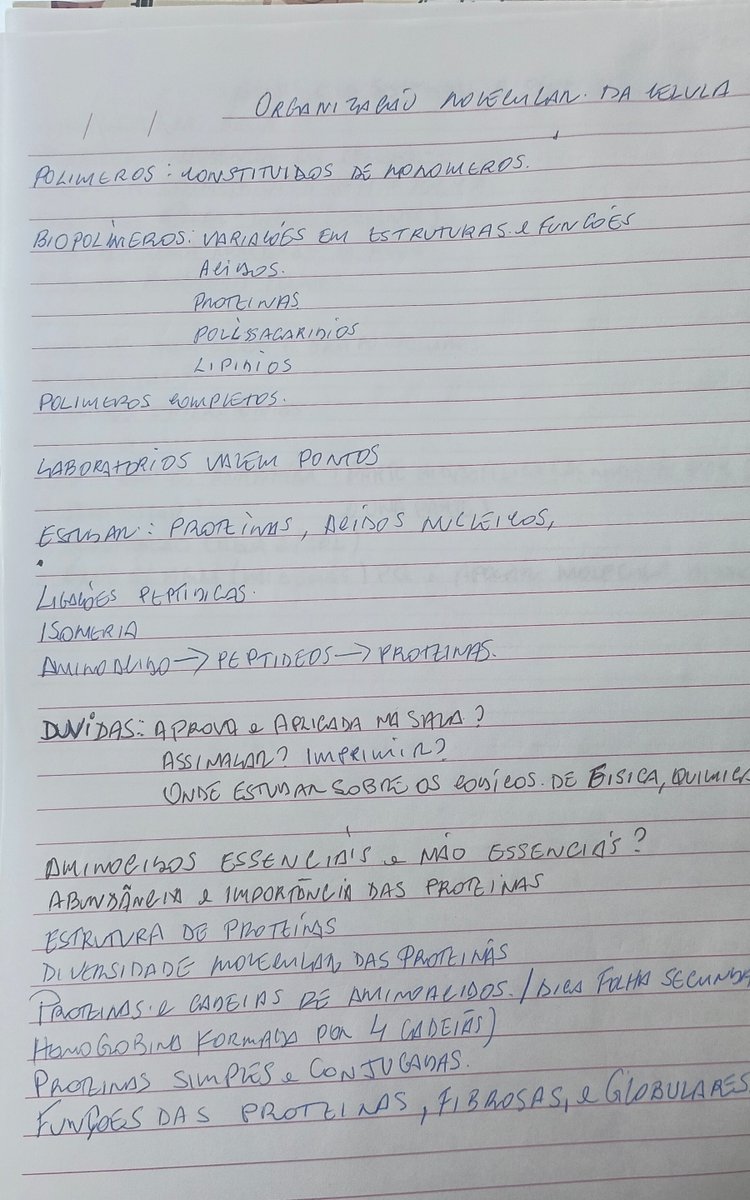 / /
ORGANIZAÇÃO MOLECULAR DA CELULA
POLIMEROS: CONSTITUIDOS DE MONOMEROS.
BIOPOLÍMEROS: VARIAÇÕES EM ESTRUTURAS e FUNÇÕES
ACIDOS.
PROTEINAS
POLISSACARIDIOS
LIPIDIOS
POLIMEROS COMPLETOS.
LABORATORIOS VALEM PONTOS
ESTUDAR: PROTEINAS, ACIDOS NUCLEICOS,
LIGAÇÕES PEPTIDICAS.
ISOMERIA
AMINOACIDO → PEPTIDEOS → PROTEINAS.
DUVIDAS: A PROVA e APLICADA NA SALA?
ASSINALAR? IMPRIMIR?
ONDE ESTUDAR SOBRE OS CODICOS. DE FISICA, QUIMICA
AMINOCIDOS ESSENCIAIS e NÃO ESSENCIAS?
ABUNDÂNCIA e IMPORTÂNCIA DAS PROTEINAS
ESTRUTURA DE PROTEÍNAS
DIVERSIDADE MOLECULAR DAS PROTEINAS
PROTEINAS e CADEIAS DE AMINOACIDOS. / DICA FOLHA SECUNDA
HOMOGLOBINA FORMADA POR 4 CADEIAS)
PROTEINAS SIMPLES e CONJUGADAS.
FUNÇOES DAS PROTEINAS, FIBROSAS, e GLOBULARES